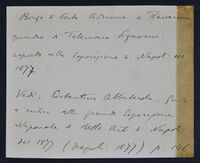 Borgo di Porta Adriana a Ravenna
quadro di Telemaco Signorini
esposto alla Esposizione di Napoli nel
1877
Vedi: Costantino Abbatecola, Guida
e critica della grande Esposizione
Nazionale di Belle Arti di Napoli
del 1877 (Napoli 1877) p.